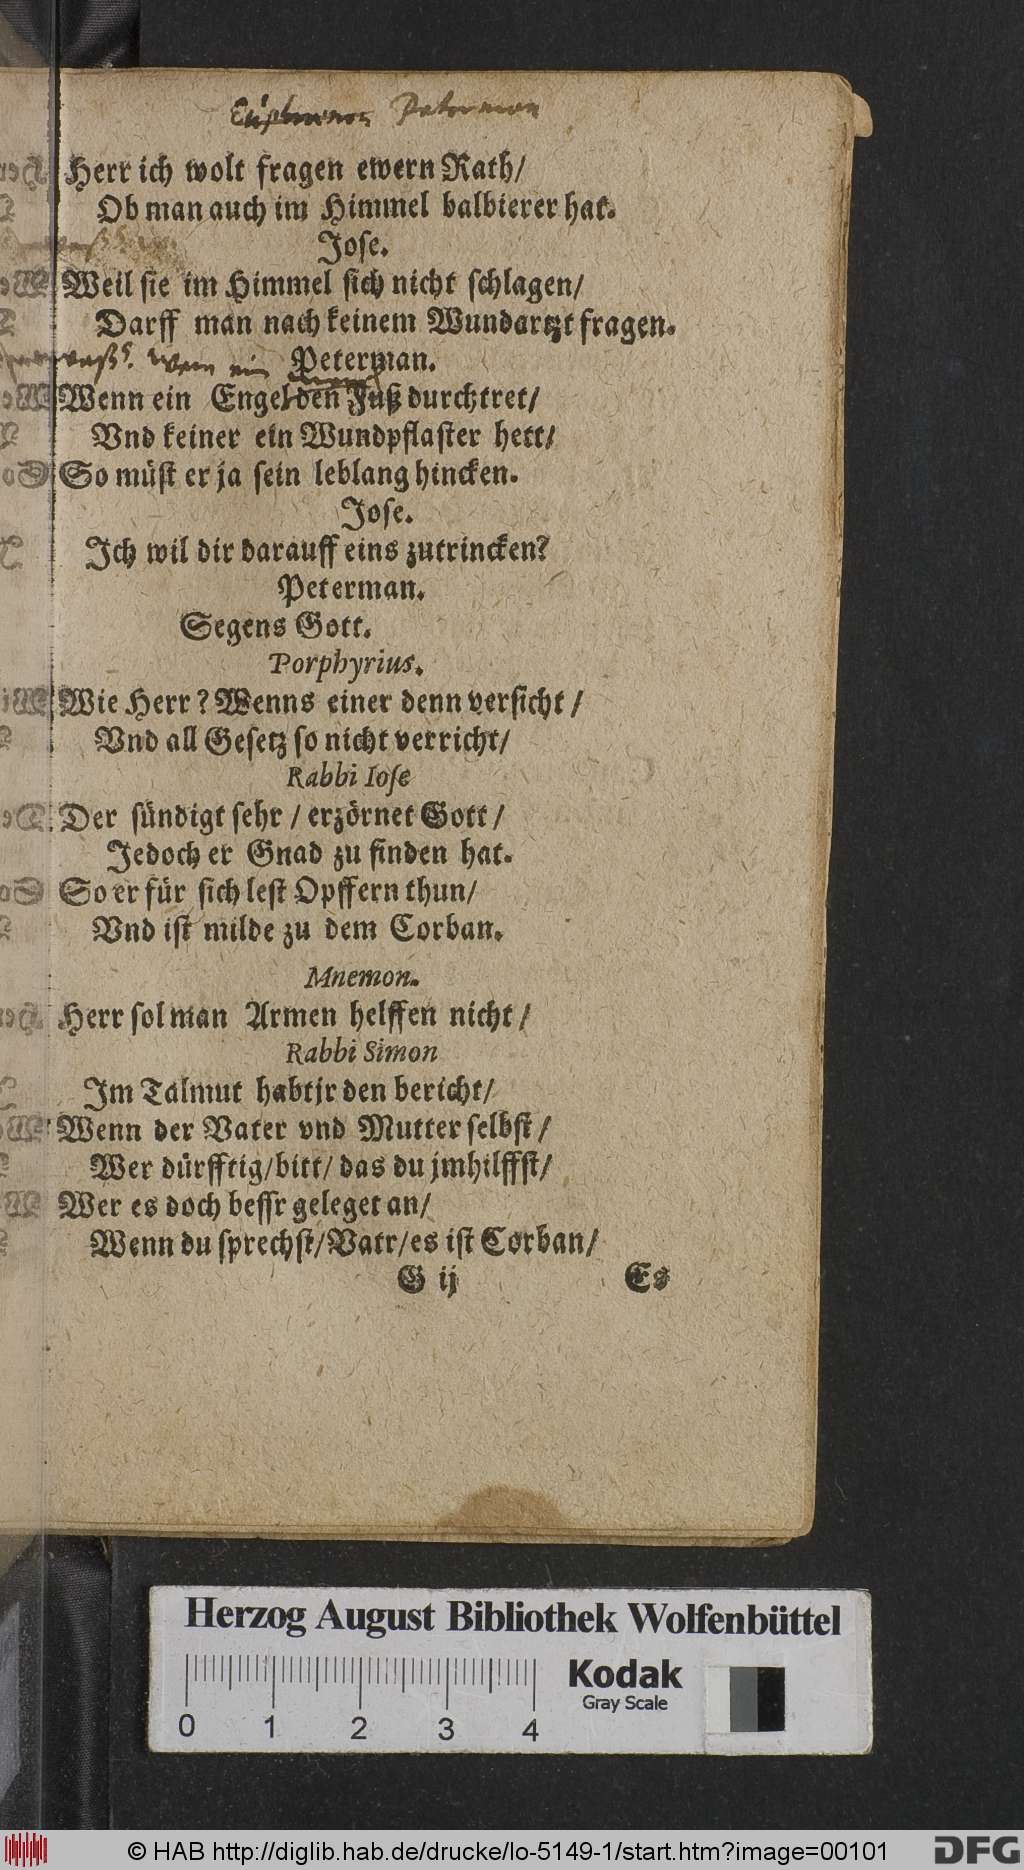 Peterman
Herr ich wolt fragen ewern Rath/
Ob man auch im Himmel balbierer hat.
Jose.
Weil sie im Himmel sich nicht schlagen/
Darff man nach keinem Wundartzt fragen.
Peterman.
wen ein
Wenn ein Engel den Fuß durchtret/
Vnd keiner ein Wundpflaster hett/
So müst er ja sein leblang hincken.
Jose.
Ich wil dir darauff eins zutrincken?
Peterman.
Segens Gott.
Porphyrius.
Wie Herr? Wenns einer denn versicht/
Vnd all Gesetz so nicht verricht/
Rabbi Iose
Der sündigt sehr/ erzörnet Gott/
Jedoch er Gnad zu finden hat.
So er für sich lest Opffern thun/
Vnd ist milde zu dem Corban.
Mnemon.
Herr sol man Armen helffen nicht/
Rabbi Simon
Im Talmut habt jr den bericht/
Wenn der Vater vnd Mutter selbst/
Wer dürfftig/ bitt/ das du jm hilffst/
Wer es doch bessr geleget an/
Wenn du sprechst/ Vatr/ es ist Corban/
G ij Es
Herzog August Bibliothek Wolfenbüttel
Kodak
Gray Scale
0 1 2 3 4
© HAB http://diglib.hab.de/drucke/lo-5149-1/start.htm?image=00101
DFG